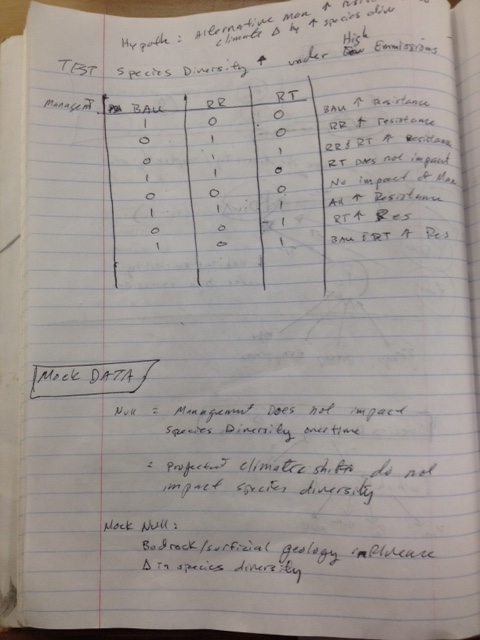 Hypoth: Alternative man ↑ resist
climate Δ by ↑ species dive
High
TBT Species Diversity ↑ under Emmissions
Managemt BAU RR RT
1 0 0 BAU ↑ resistance
0 1 0 RR ↑ resistance
0 1 1 RR & RT ↑ Resistance
1 1 0 RT Does not impact
0 0 0 No impact of Man
1 1 1 All ↑ Resistance
0 0 1 RT ↑ Res
1 0 1 BAU & RT ↑ Res
Mock DATA
Null = Management Does not impact
species Diversity overtime
= Projected climatic shifts do not
impact species diversity
Mock Null:
Bedrock/surficial geology influence
Δ in species diversity